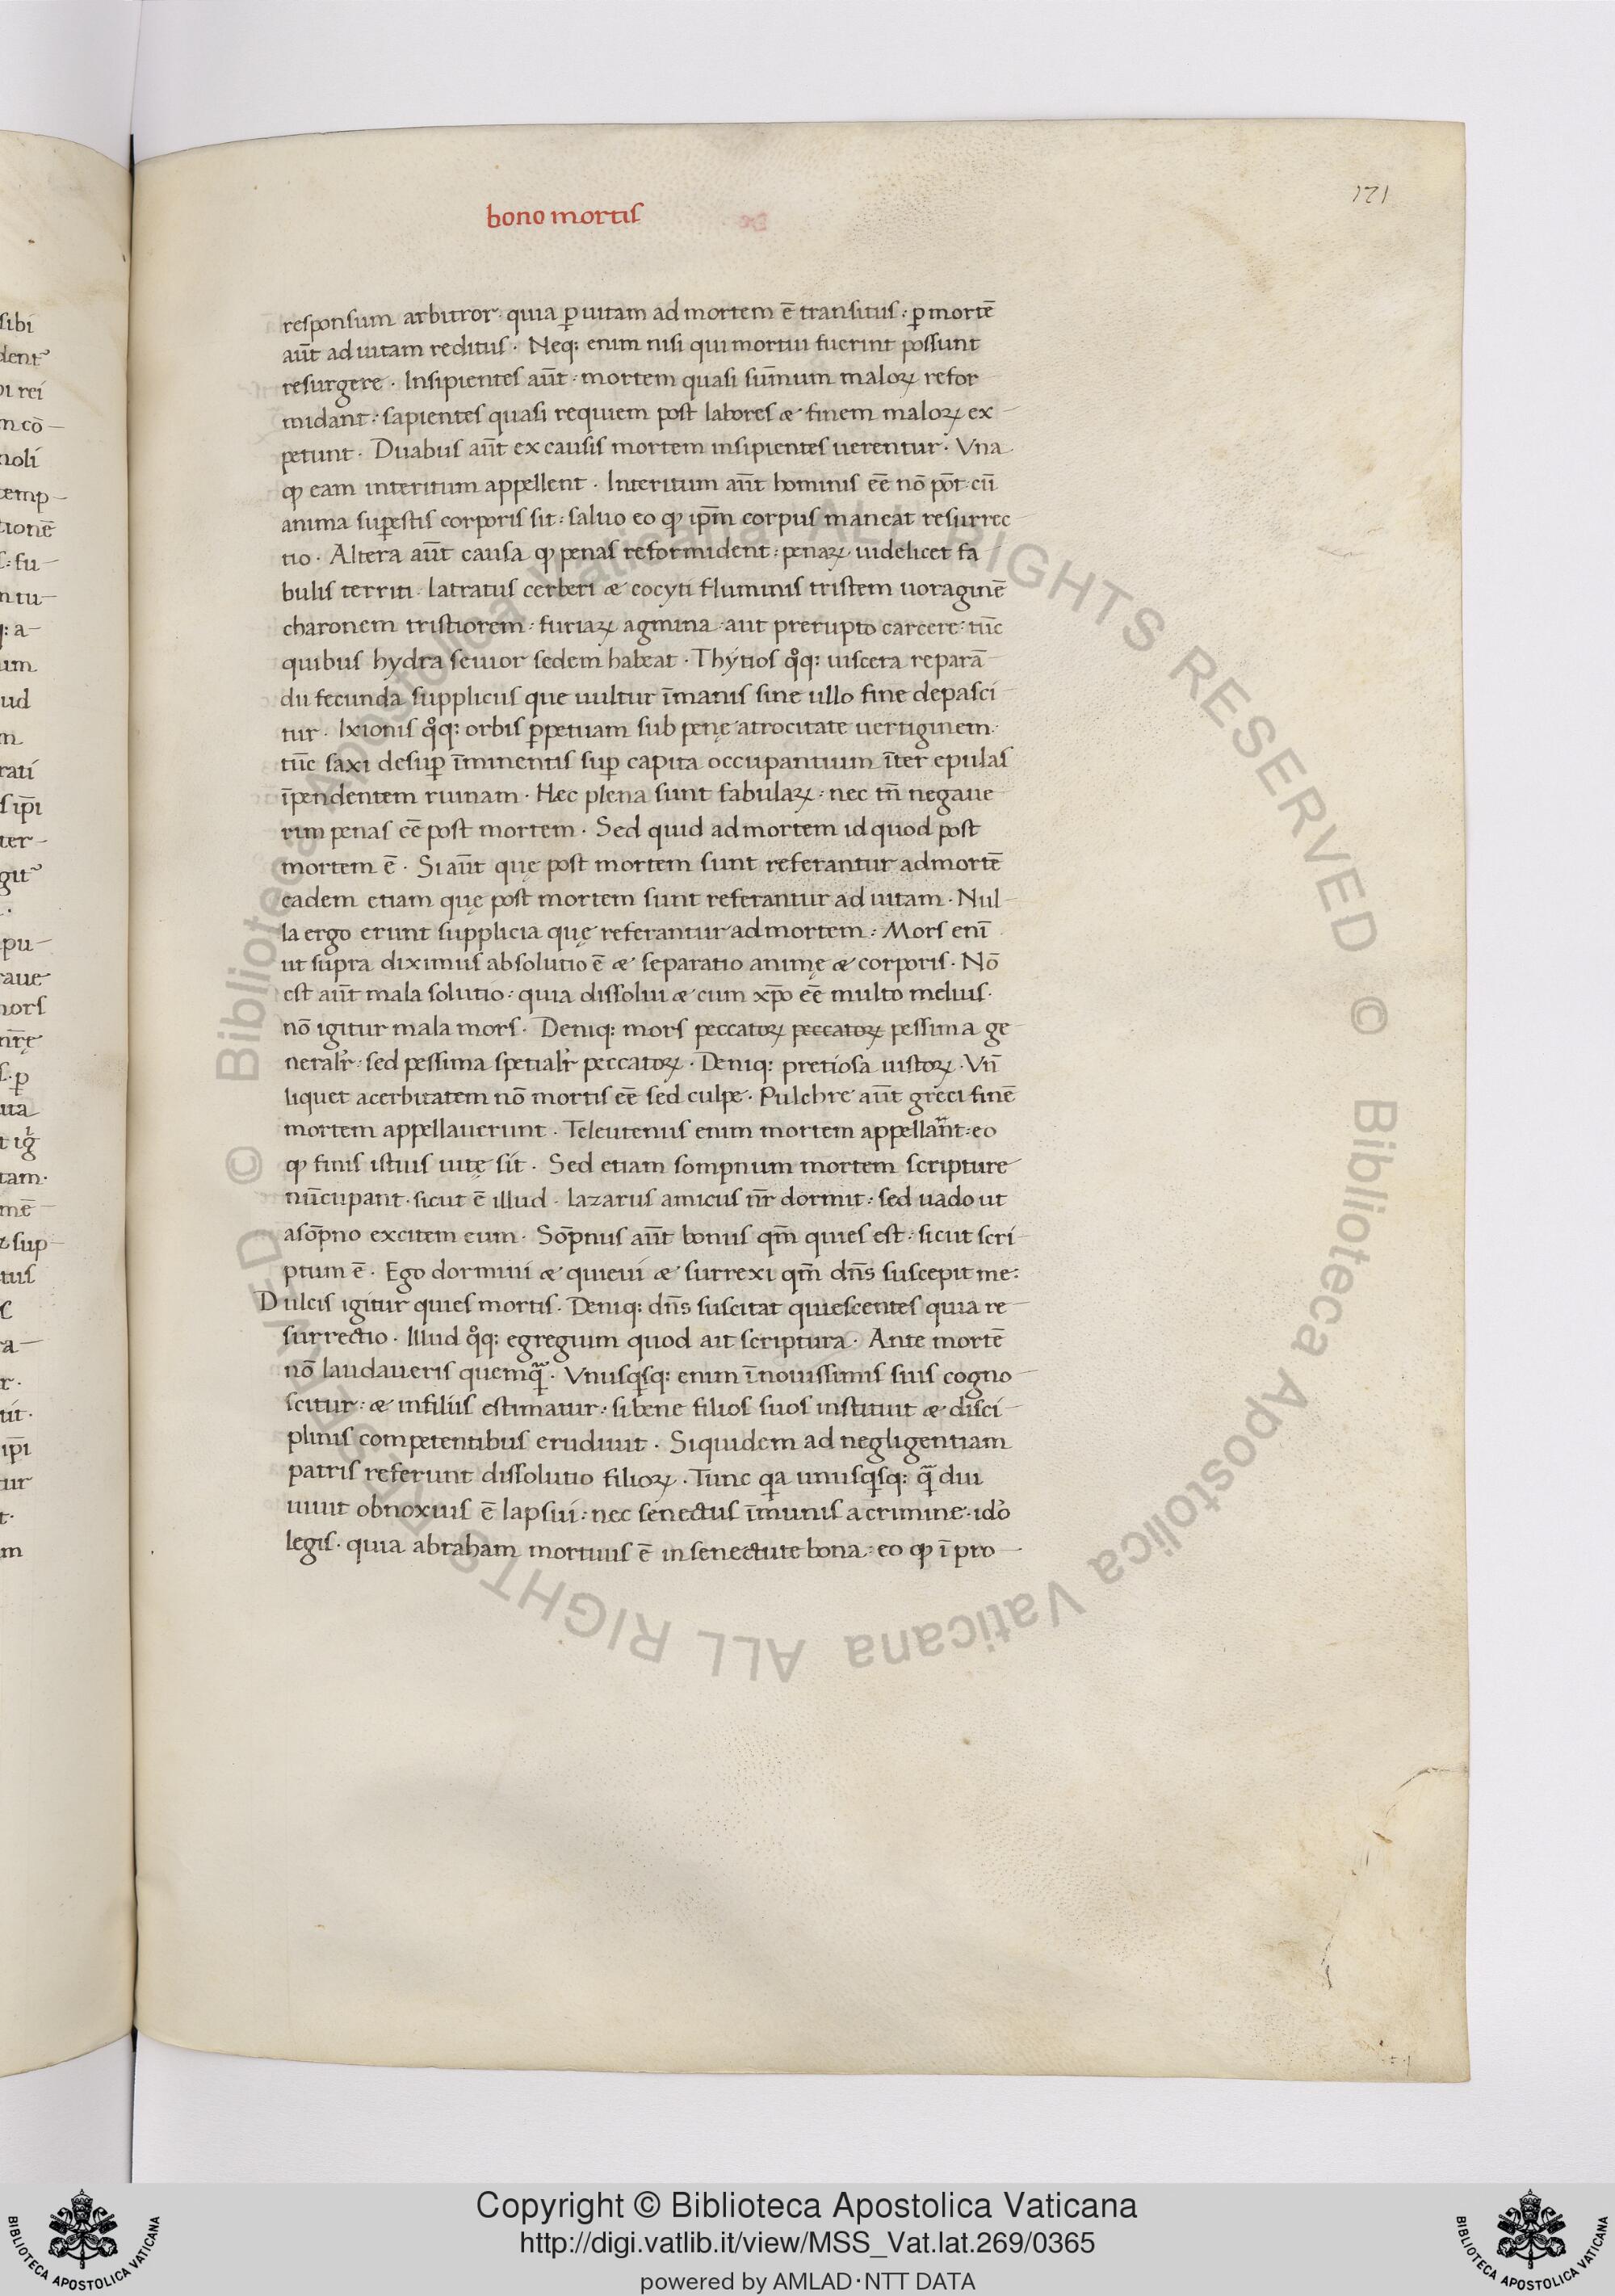 bono mortis
171
responsum arbitror· quia ꝑ uitam ad mortem ē transitus: ꝑ mortē
aūt ad uitam reditus· Neq: enim nisi qui mortui fuerint possunt
resurgere· Insipientes aūt· mortem quasi sūmum maloꝝ refor
midant: sapientes quasi requiem post labores & finem maloꝝ ex-
petunt· Duabus aūt ex causis mortem insipientes uerentur· Vna
ꝙ eam interitum appellent· Interitum aūt hominis eē nō pōt· cū
anima suꝑestis corporis sit: saluo eo ꝙ ip̄m corpus maneat resurrec
tio· Altera aūt causa ꝙ penas reformident: penaꝝ uidelicet fa
bulis territi· latratus cerberi & cocyti fluminis tristem uoraginē
charonem tristiorem: furiaꝝ agmina· aut prerupto carcere: tūc
quibus hydra seuior sedem habeat· Thytios qͦq: uiscera reparā
dis fecunda suppliciis que uultur īmanis sine ullo fine depasci
tur· Ixionis qͦq: orbis ꝑpetuam sub penę atrocitate uertiginem·
tūc saxi desuꝑ īminentis suꝑ capita occupantium īter epulas
īpendentem ruinam· Hæc plena sunt fabulaꝝ: nec tn̄ negaue
rim penas eē post mortem· Sed quid ad mortem id quod post
mortem ē· Si aūt quę post mortem sunt referantur ad mortē
eadem etiam quę post mortem sunt referantur ad uitam· Nul-
la ergo erunt supplicia quę referantur ad mortem: Mors enī
ut supra diximus absolutio ē & separatio animę & corporis· Nō
est aūt mala solutio: quia dissolui & cum xp̄o eē multo melius·
nō igitur mala mors· Deniq: mors peccatoꝝ peccatoꝝ pessima ge
neralr̄· sed pessima spetialr̄ peccatoꝝ· Deniq: pretiosa iustoꝝ· Vn̄
liquet acerbitatem nō mortis eē sed culpe· Pulchre aūt greci finē
mortem appellauerunt· Teleutenus enim mortem appellan̄t: eo
ꝙ finis istius uitę sit· Sed etiam sompnum mortem scripture
nūcupant· sicut ē illud· lazarus amicus nr̄ dormit: sed uado ut
a sōpno excitem eum· Sōpnus aūt bonus qm̄ quies est: sicut scri
ptum ē· Ego dormiui & quieui & surrexi qm̄ dn̄s suscepit me:
Dulcis igitur quies mortis· Deniq: dn̄s suscitat quiescentes quia re-
surrectio· Illud qͦq: egregium quod ait scriptura· Ante mortē
nō laudaueris quemqᷓ· Vnusqsq: enim ī nouissimis suis cogno
scitur: & in filiis estimatur: si bene filios suos instituit & disci
plinis competentibus erudiuit· Siquidem ad negligentiam
patris referunt dissolutio filioꝝ· Tunc qa unusqsq: qᷓdiu
uiuit obnoxius ē lapsui: nec senectus īmunis a crimine· idͦo
legis· quia abraham mortuus ē in senectute bona: eo ꝙ ī pro-
sibi
dent
bi rei
m cō-
noli
temp-
tionē
s: fu-
n tu-
q: a-
um
ud
m
rati
s ip̄i
ter-
git
pu-
raue
mors
nr̄ę
s· ꝑ
uita
t igͥ
tam·
mē
& sup-
tuis
c
ra-
r·
tit·
ip̄i
tur
t·
m
© Biblioteca Apostolica Vaticana ALL RIGHTS RESERVED © Biblioteca Apostolica Vaticana ALL RIGHTS RESERVED
Copyright © Biblioteca Apostolica Vaticana
http://digi.vatlib.it/view/MSS_Vat.lat.269/0365
powered by AMLAD·NTT DATA
BIBLIOTECA APOSTOLICA VATICANA
BIBLIOTECA APOSTOLICA VATICANA